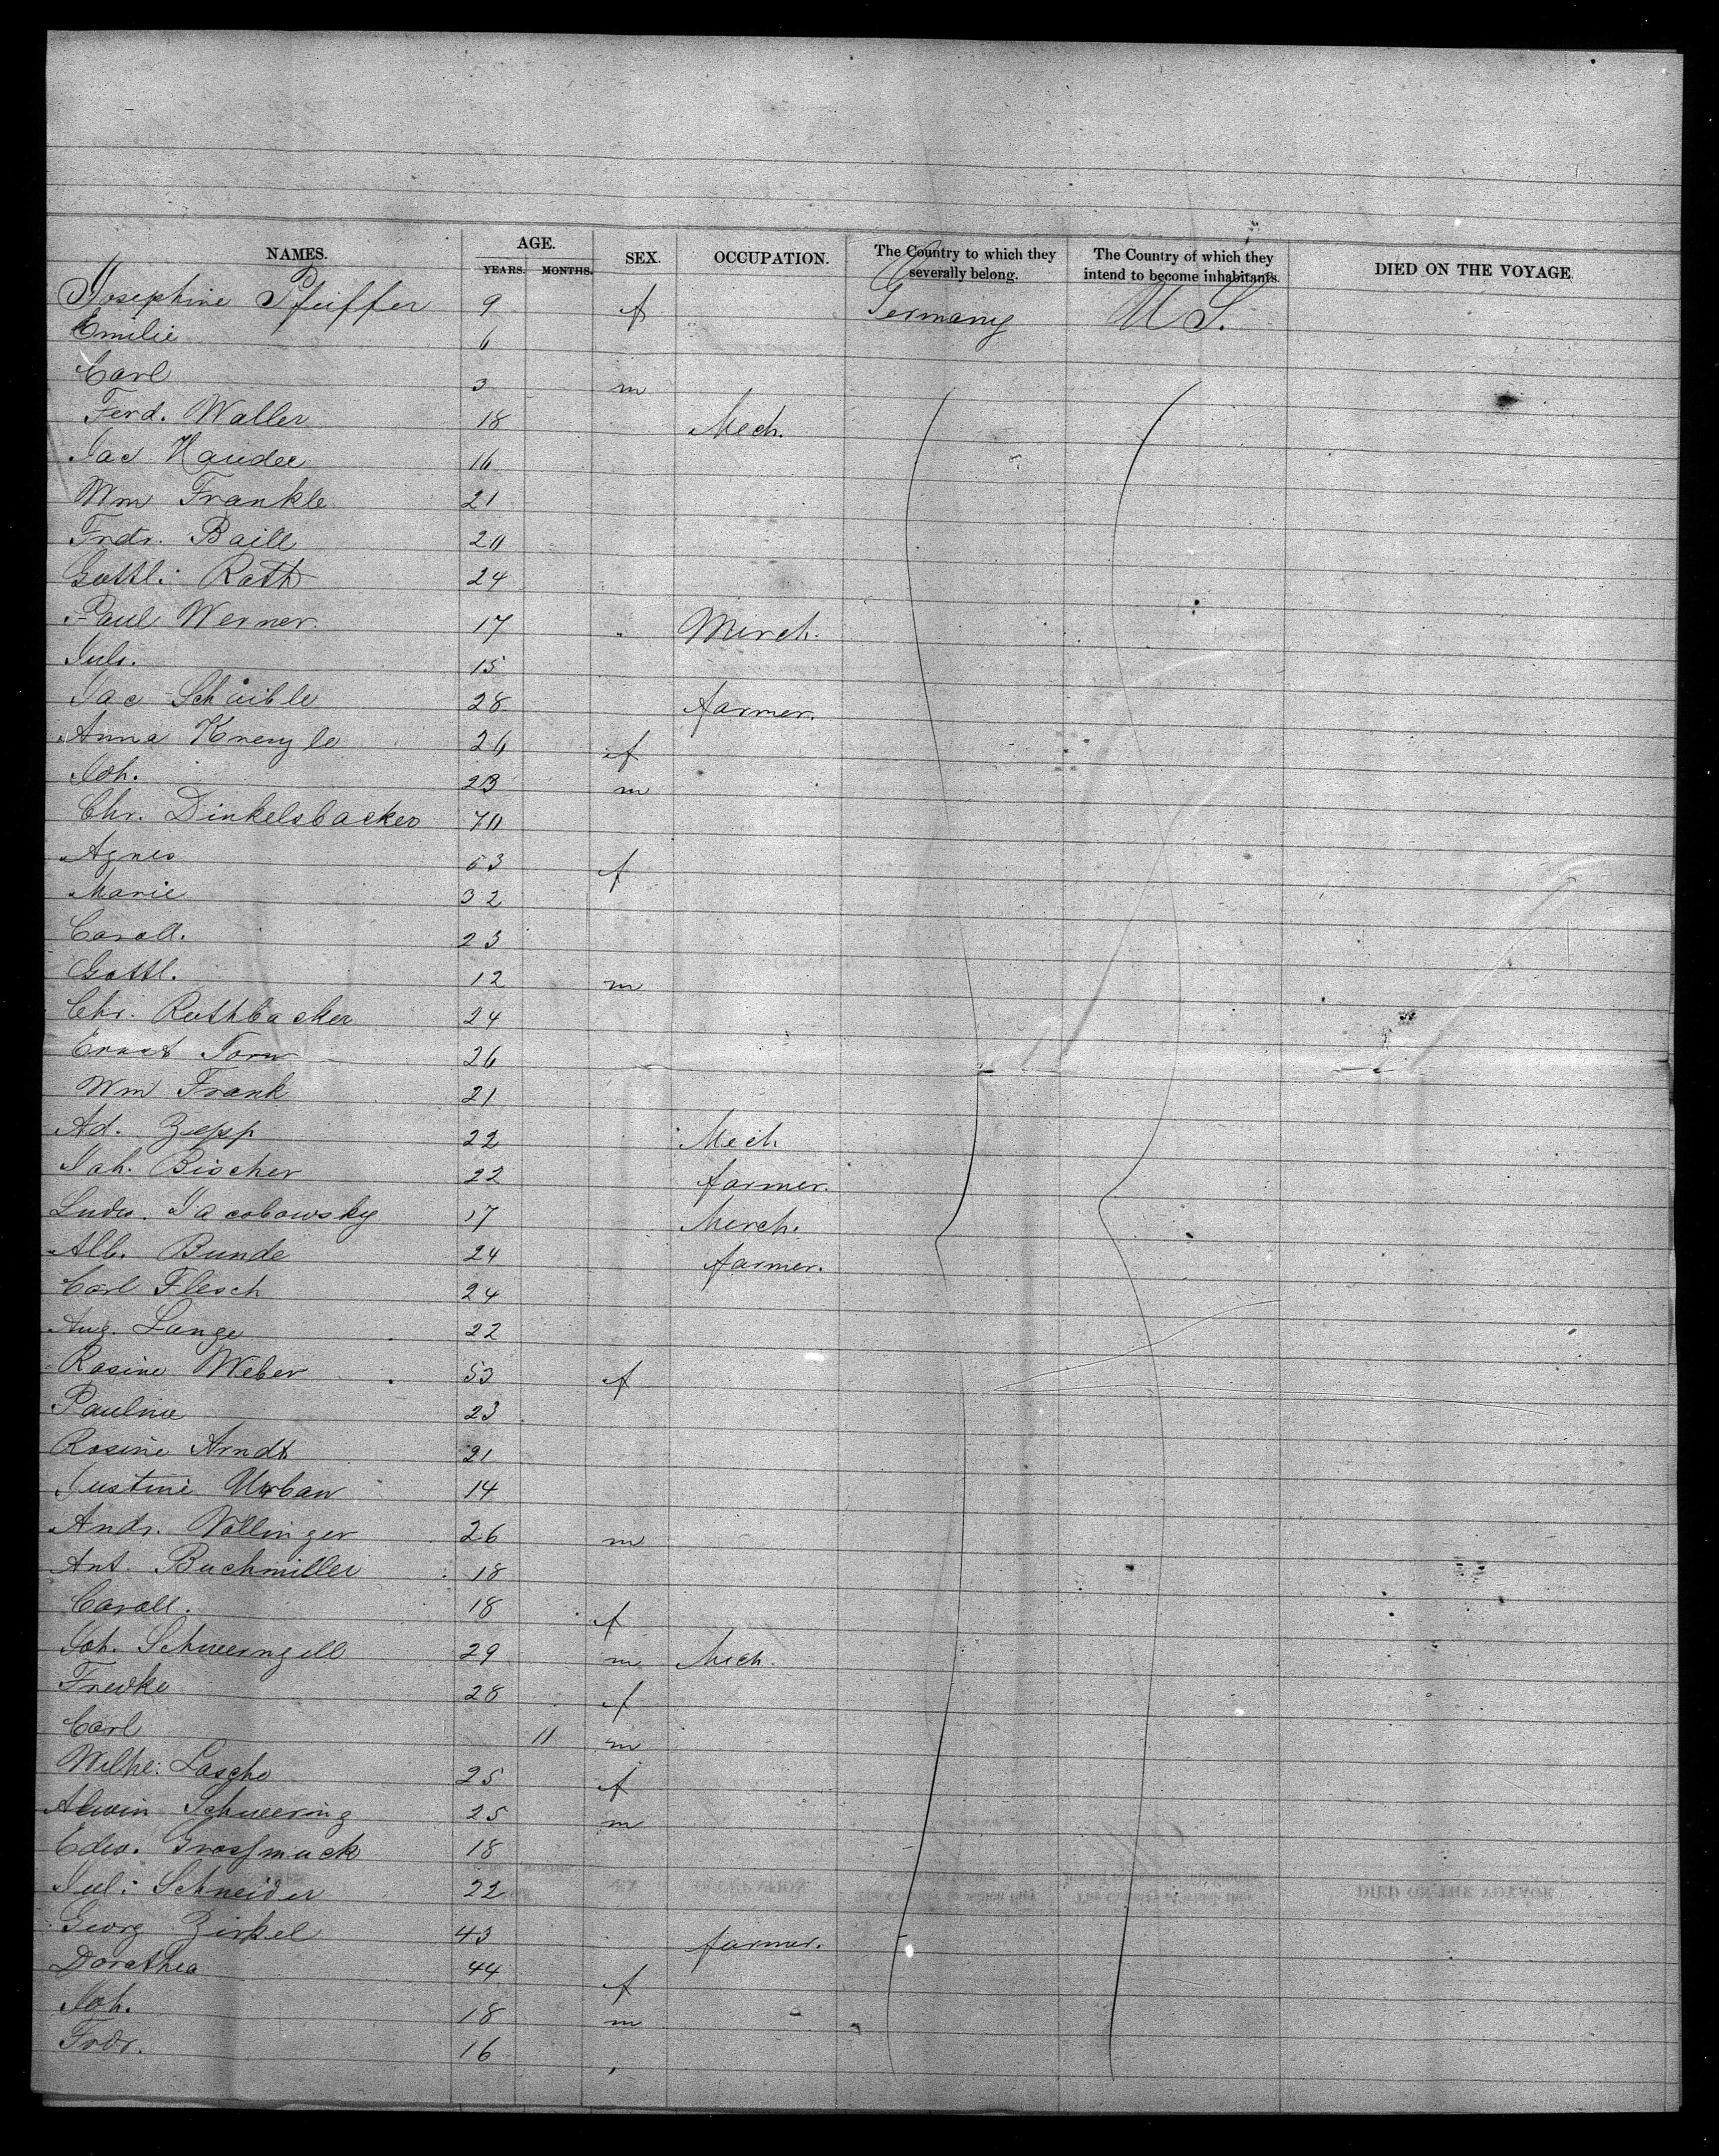 NAMES. AGE. YEARS. MONTHS. SEX. OCCUPATION. The Country to which they severally belong. The Country of which they intend to become inhabitants. DIED ON THE VOYAGE.
Josephine Pfeiffer 9 f Germany U S.
Emilie 6
Carl 3 m
Ferd. Waller 18 Mech.
Jac 16
Wm Frankle 21
Frdr. Baill 20
Gottl: Rath 24
Paul Werner. 17 " Merch.
Juls. 15
Jac Schaible 28 farmer.
Anna 26 f
Joh. 23 m
Chr. Dinkelsbacker 70
Agnes 63 f
Marie 32
Caroll. 23
Gottl. 12 m
Chr. Ruthbacker 24
Ernst 26
Wm Frank 21
Ad. Zepp 22 Mech
Joh. Bischer 22 farmer.
Ludw. Jacobowsky 17 Merch.
Alb. Bunde 24 farmer.
Carl Flesch 24
Aug. Lange 22
Rosine Weber 53 f
Pauline 23
Rosine Arndt 21
Justine Urban 14
Andr. Vollinger 26 m
Ant. Buchmiller 18
Caroll. 18 f
Joh. 29 m Mech.
28 f
Carl 11 m
Wilhe: Lascho 25 f
Alwin Schwering 25 m
Edw. 18
Jul: Schneider 22
Georg Zirkel 43 farmer.
Dorathea 44 f
Joh. 18 m
Frdr. 16 "